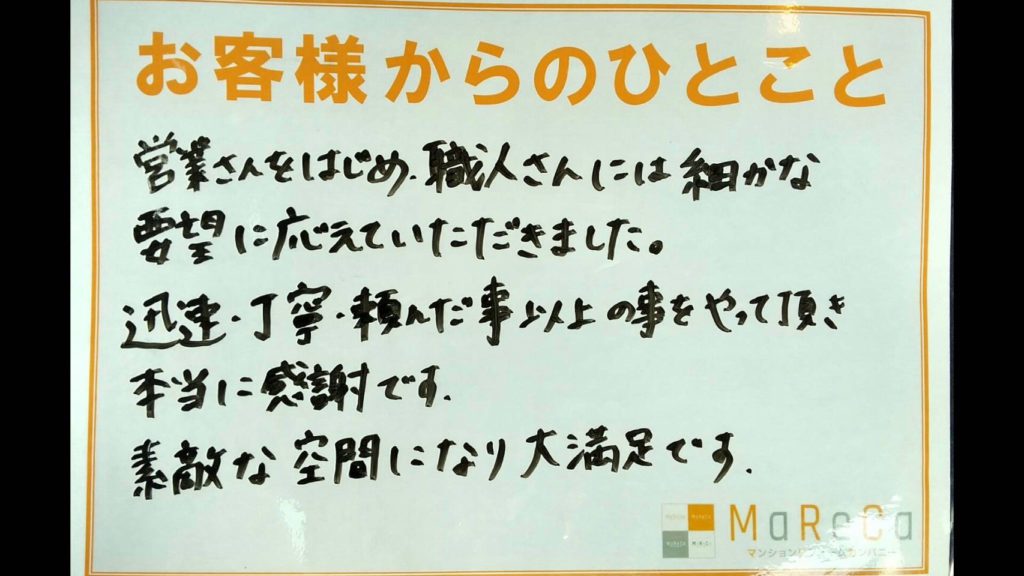 お客様からのひとこと
営業さんをはじめ、職人さんには細かな
要望に応えていただきました。
迅速・丁寧・頼んだ事以上の事をやって頂き
本当に感謝です.
素敵な空間になり大満足です.
MaReCa
マンションリフォームカンパニー